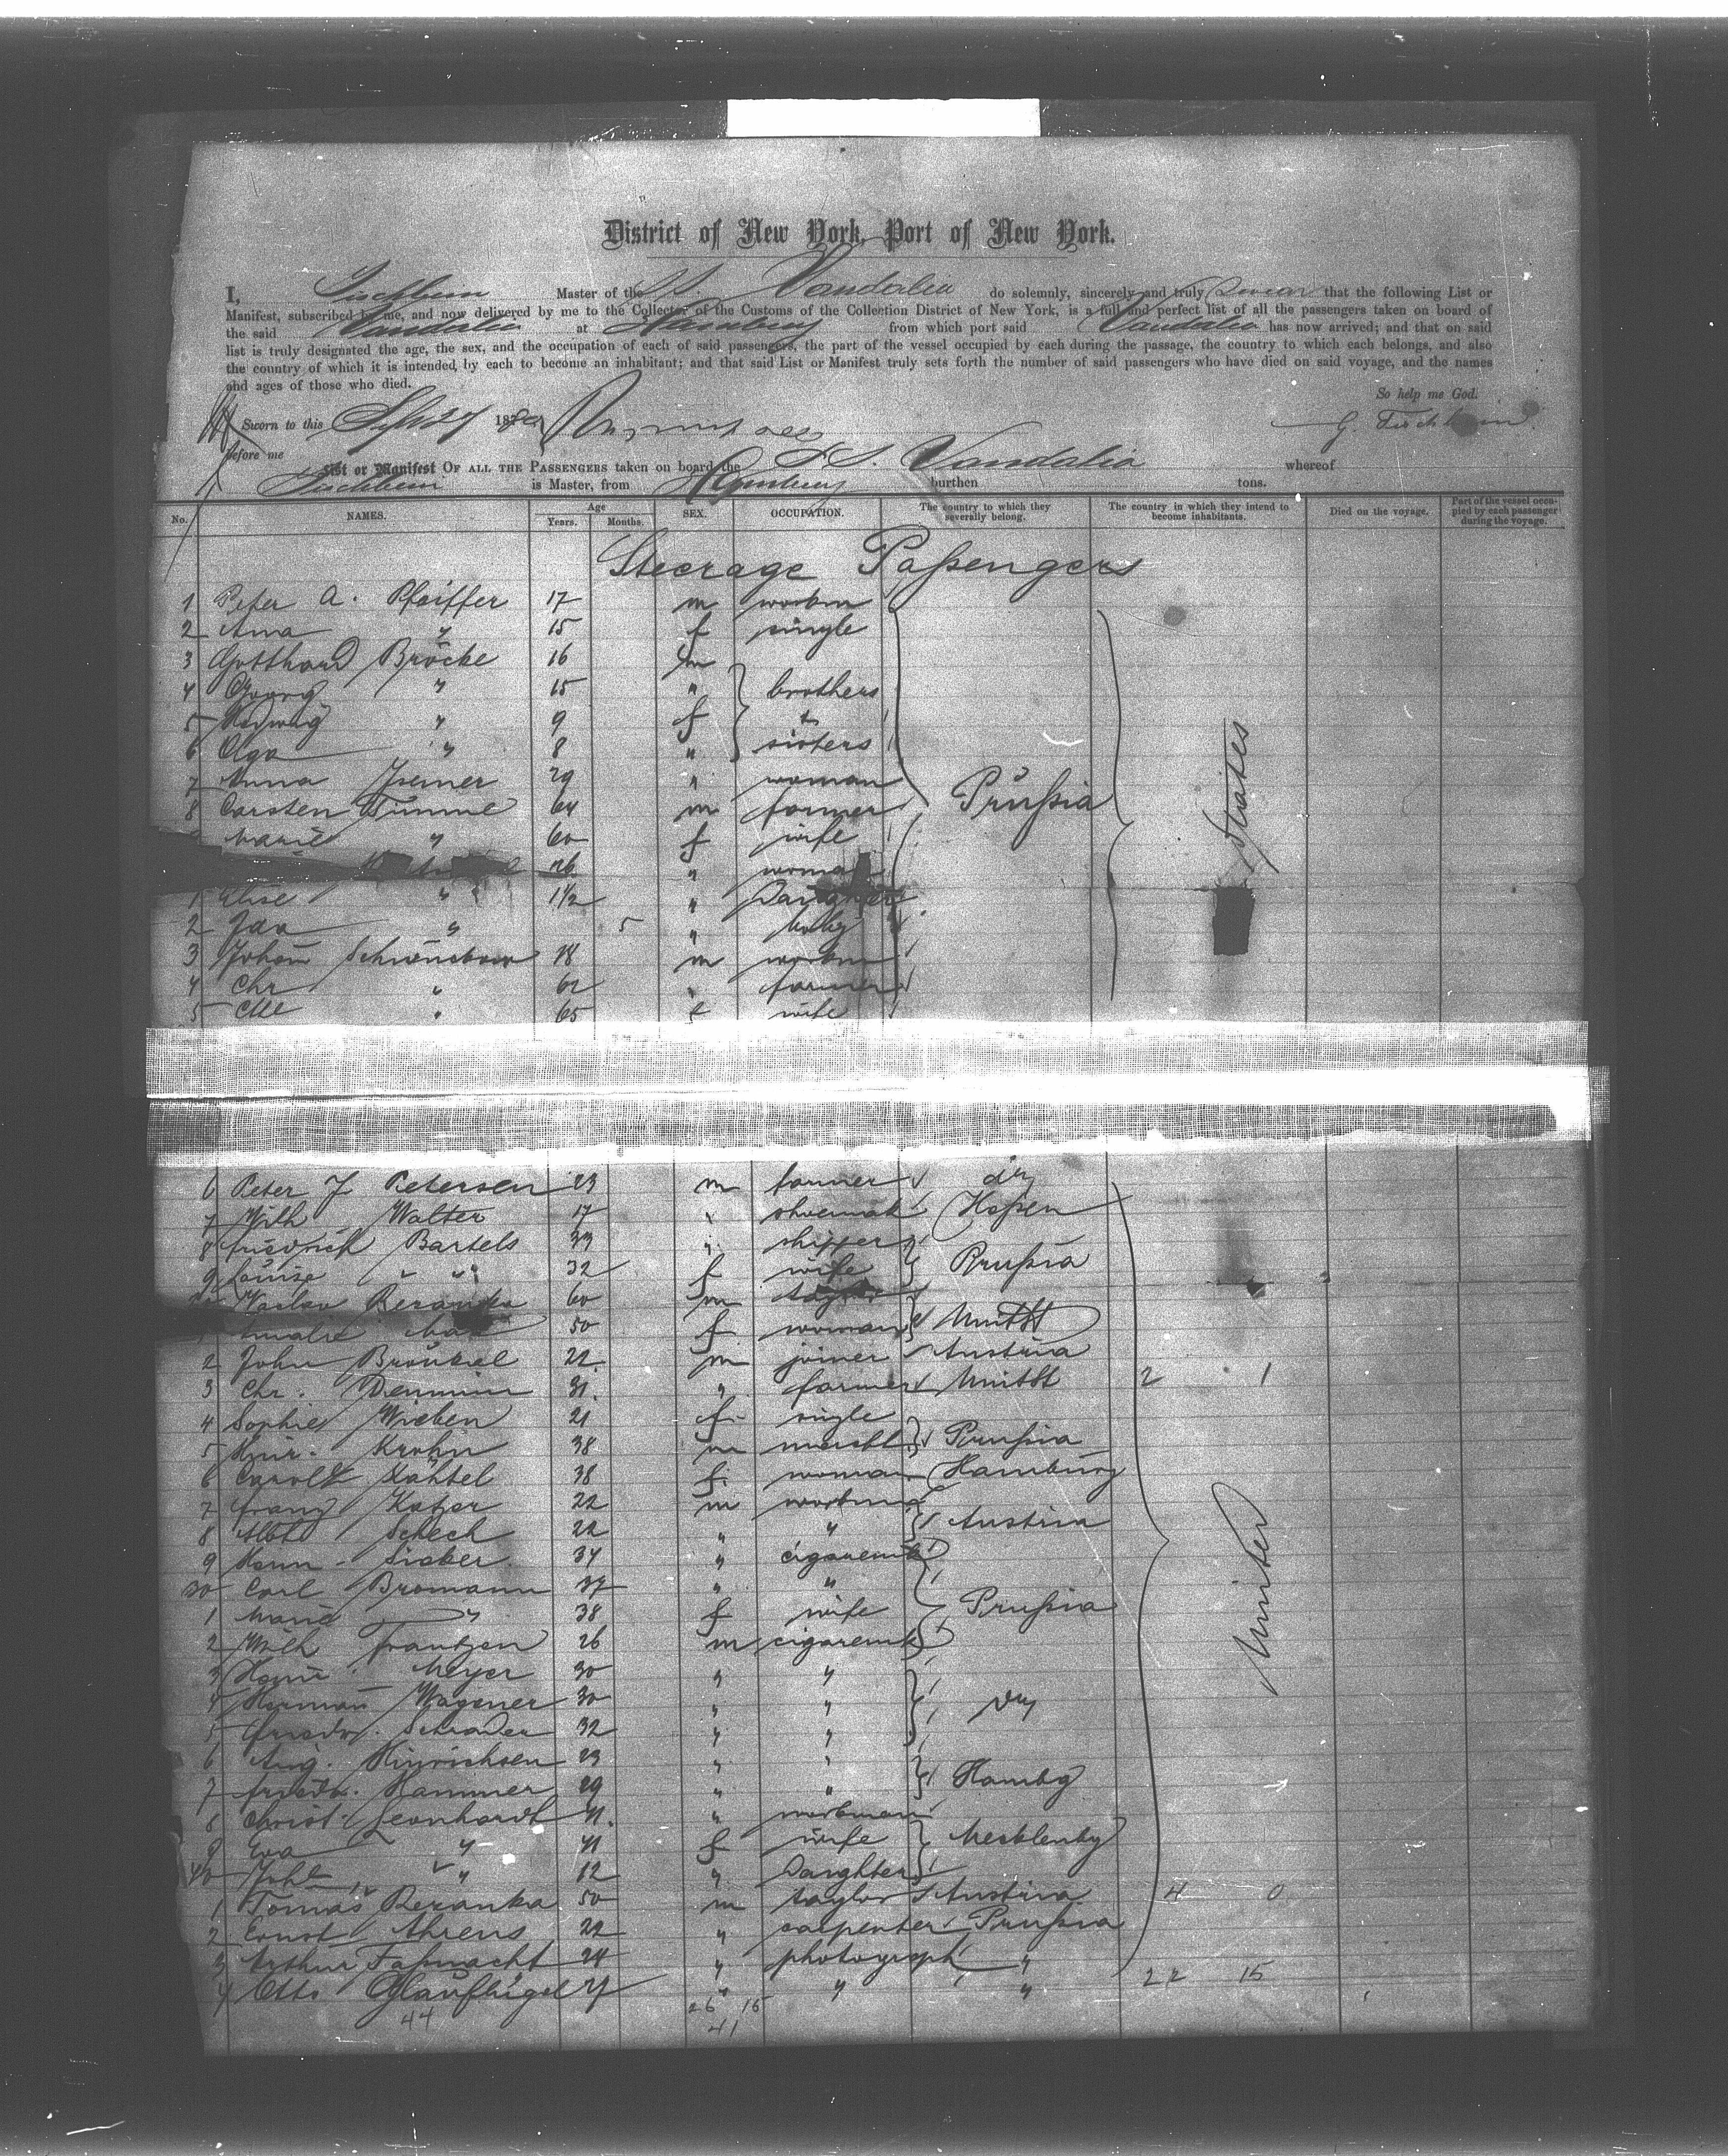 District of New York, Port of New York.
I, Fischbein Master of the S.S. Vandalia do solemnly, sincerely and truly swear that the following List or
Manifest, subscribed by me, and now delivered by me to the Collector of the Customs of the Collection District of New York, is a full and perfect list of all the passengers taken on board of
the said Vandalia at Hamburg from which port said Vandalia has now arrived; and that on said
list is truly designated the age, the sex, and the occupation of each of said passengers, the part of the vessel occupied by each during the passage, the country to which each belongs, and also
the country of which it is intended by each to become an inhabitant; and that said List or Manifest truly sets forth the number of said passengers who have died on said voyage, and the names
and ages of those who died.
So help me God.
Sworn to this Sept 27 18 G. Fischbein
before me
List or Manifest OF ALL THE PASSENGERS taken on board the S.S. Vandalia whereof
Fischbein is Master, from Hamburg burthen tons.
No. NAMES. Age Years. Months. SEX. OCCUPATION. The country to which they severally belong. The country in which they intend to become inhabitants. Died on the voyage. Part of the vessel occupied by each passenger during the voyage.
Steerage Paßengers
1 Peter A. Pfeiffer 17 m workm
2 Anna " 15 f single
3 Gotthard Bröcke 16 m
4 Georg " 15 " brothers
5 Hedwig " 9 f &
6 Olga " 8 " sisters
7 Anna Jsemer 29 " woman
8 Carsten Thümmel 64 m farmer Prußia States
Marie " 60 f wife
26 " woman
1 Elise " 1½ " Daughter
2 Jda " 5 " baby
3 Johann 18 m workm
4 Chr " 62 " farmer
5 " 65 f wife
6 Peter J Petersen 23 m farmer do
7 Wilh Walter 17 " shoemak Heßen
8 Friedrich Bartels 33 " shipper
9 Louise " 32 f wife Prußia
Waslav Beranka 60 m taylor
1 Amalie 50 f woman
2 John Brönkel 22 m joiner Austria
3 Chr. Demmin 31. " farmer 2 1
4 Sophie Wieben 21 f single
5 Heinr. Krohn 38 m Prußia
6 38 f. woman Hamburg
7 Franz Katzer 22 m workman
8 Albt Schech 22 " " Austria
9 Herm. Sieber 34 " cigaremk
30 Carl Bromann 37 " "
1 Maria " 38 f wife Prußia United
2 Wilh Frantzen 26 m cigaremk
3 Meyer 30 " "
4 Herman Wagener 30 " "
5 Friedr. Schrader 32 " "
6 Aug. Hinrichsen 23 " "
7 Friedr. Hammer 29 " " Hambg
8 Christ. Leonhardt 41. " workman
9 Eva " 41 f wife Mecklenbg
40 " 12 " Daughter
1 Tomas Beranka 50 m taylor Austria 4 0
2 Ernst Ahrens 22 " carpenter Prußia
3 Arthur Faßnacht 24 " photograph "
4 Otto Glaüflügel " " " 22 15
44 26 15
41